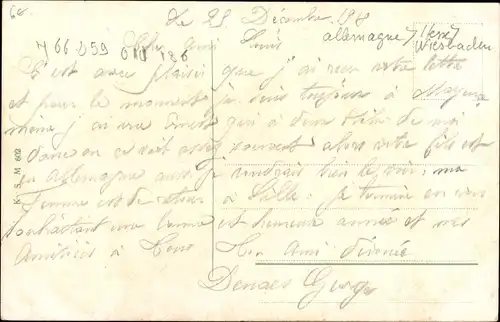 60
Le 29 Décembre 1918
766059 011 186
allemagne / Wiesbaden
Cher ami Louis
C'est avec plaisir que j'ai reçu votre lettre
et pour le moment je suis toujours à Mayence
même j'ai une qui à deux de moi
donc on se voit assez souvent alors votre fils est
en Allemagne aussi je voudrais bien le voir; ma
femme est de retour à Lille: je termine en vous
souhaitant une bonne et heureuse année et mes
Amitiés à Tous Ton Ami dévoué
Georges
K. S. M 602